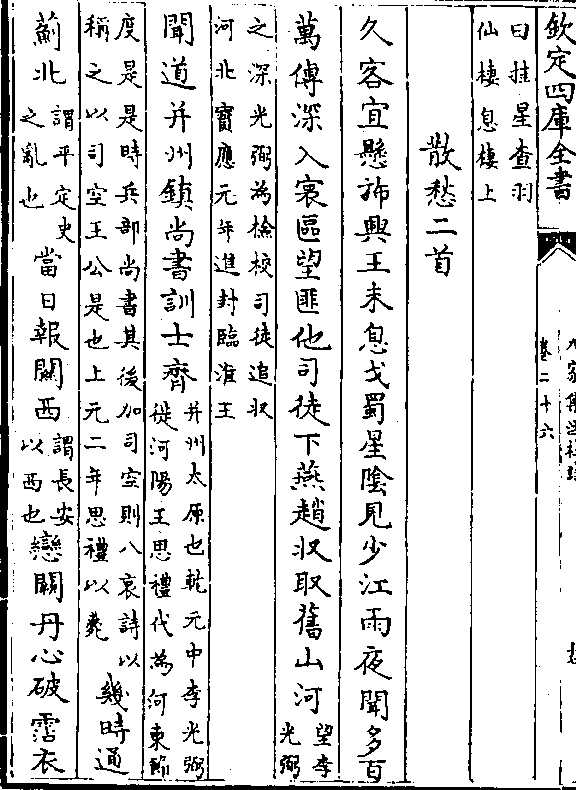 欽定四庫全書
卷二十六
曰挂星查羽
仙棲息棲上
散愁二首
久客宜懸旆興王未息戈蜀星陰見少江雨夜聞多百
萬傳深入寰區望匪他司徒下燕趙收取舊山河望李
光弼
之深光弼為檢校司徒追収
河北寶應元年進封臨淮王
聞道并州鎮尚書訓士齊并州太原也乾元中李光弼
徙河陽王思禮代為河東節
度是是時兵部尚書其後加司空則八哀詩以
稱之以司空王公是也上元二年思禮以薨
幾時通
薊北謂平定史
之亂也
當日報關西謂長安
以西也
戀闕丹心破霑衣